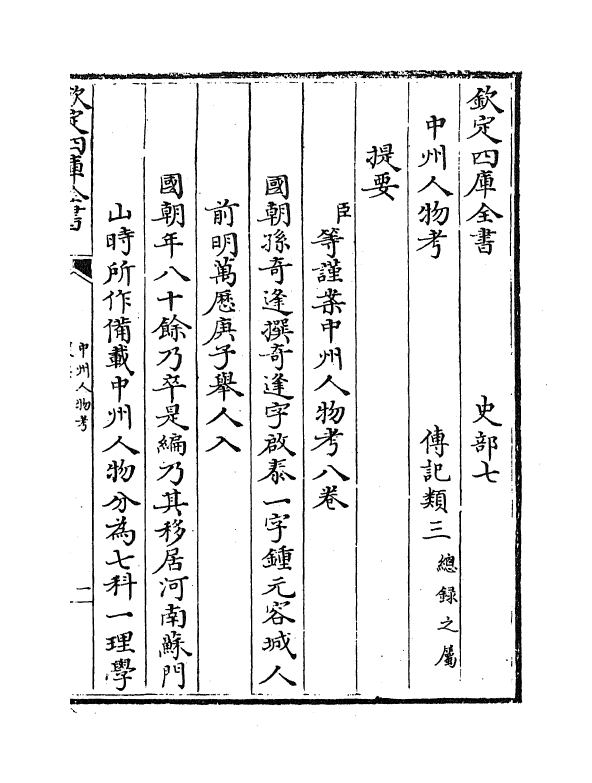 欽定四庫全書　史部七
中州人物考　傳記類三總録之屬
提要
臣等謹案中州人物考八卷
國朝孫奇逢撰奇逢字啟泰一字鍾元容城人
前明萬歷庚子舉人入
國朝年八十餘乃卒是編乃其移居河南蘇門
山時所作備載中州人物分為七科一理學
欽定四庫全書
中州人物考
一